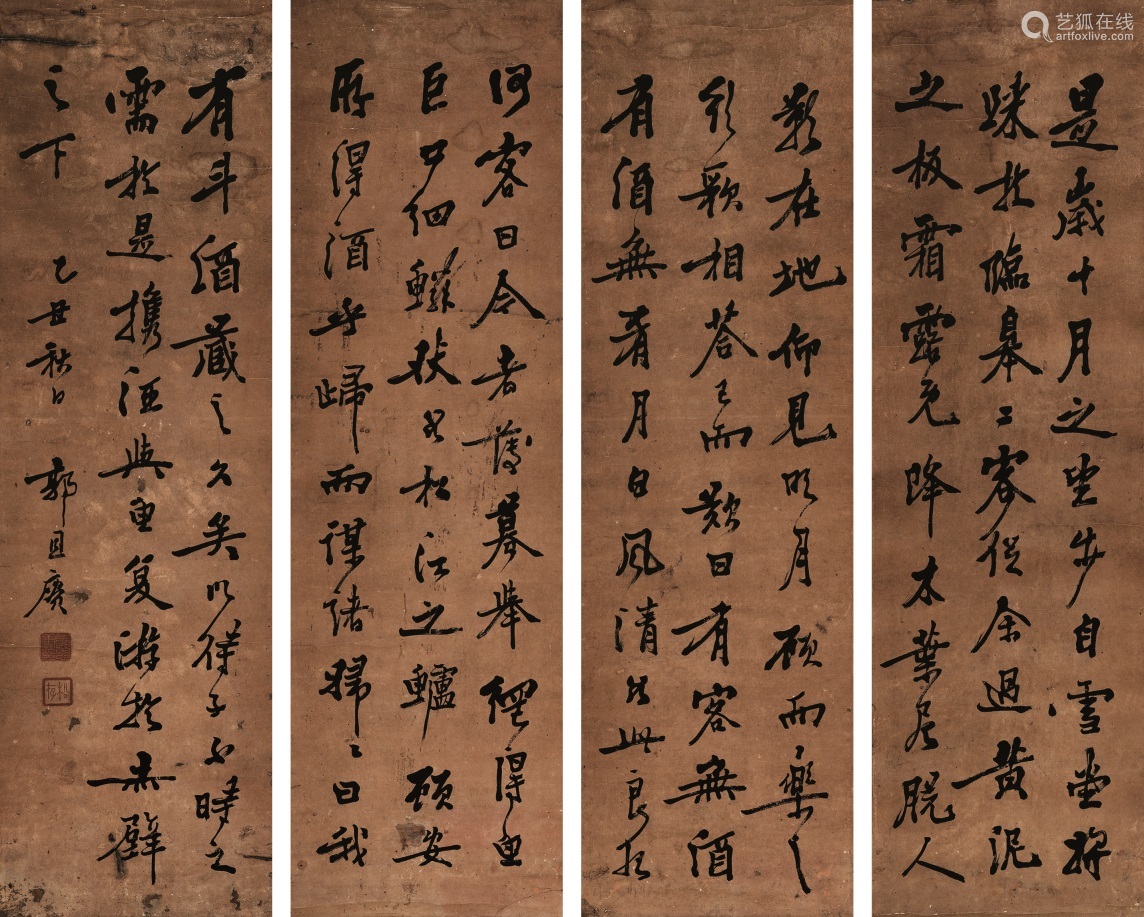 是歲十月之望步自雪堂將
歸於臨皋二客從余過黃泥
之板霜露既降木葉盡脫人
影在地仰見明月顧而樂之
行歌相答已而歎曰有客無酒
有酒無肴月白風清如此良夜
何客曰今者薄暮舉網得魚
巨口細鱗狀如松江之鱸顧安
所得酒乎歸而謀諸婦〻曰我
有斗酒藏之久矣以待子不時之
需於是攜酒與魚復游於赤壁
之下 乙丑秋日 郭
艺狐在线
artfoxlive.com